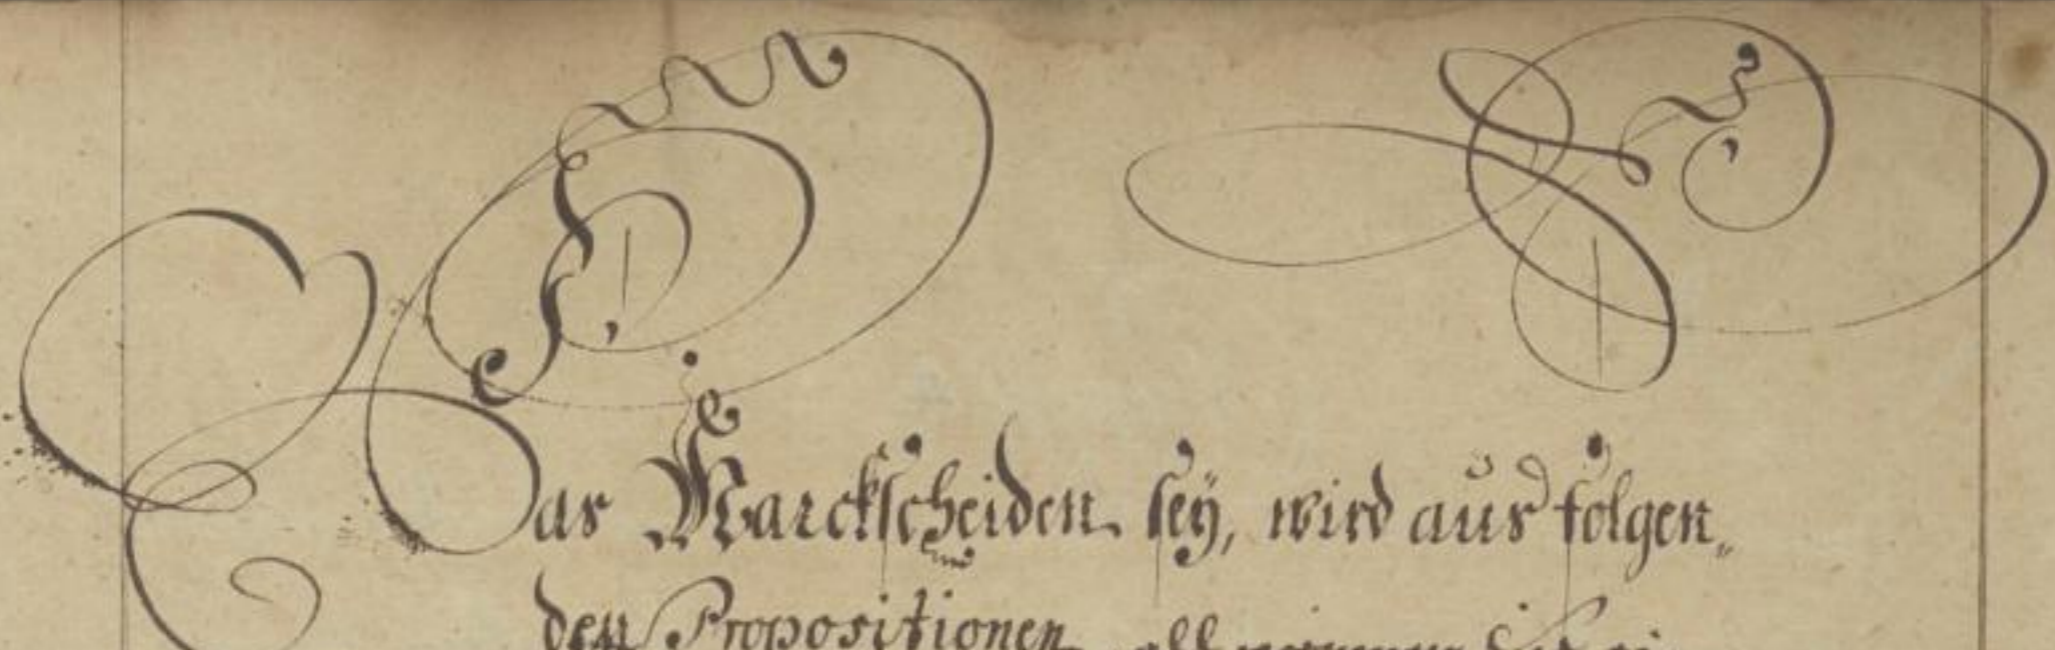 Was Marckscheiden seÿ, wird aus folgen„
den Propositionen